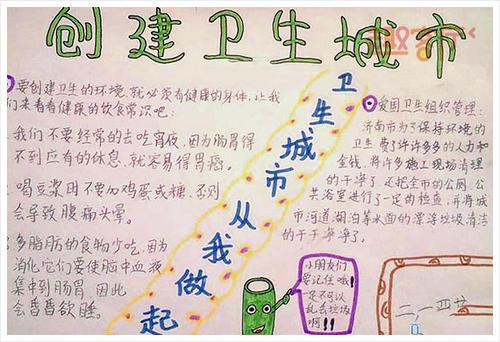 创建卫生城市
要创建卫生的环境,就必须有健康的身体,让我
们来看看健康的饮食常识吧:
我们不要经常的去吃宵夜,因为肠胃得
不到应有的休息,就容易得胃癌。
喝豆浆时不要加鸡蛋或糖,否则
会导致腹痛头晕。
多脂肪的食物少吃,因为
消化它们要使脑中血液
集中到肠胃,因此
会昏昏欲睡。
卫生城市从我做起
爱国卫生组织管理:
济南市为了保持环境的
卫生,费了许许多多的人力和
金钱,将许多施工现场清理
的干净了,还把全市的公厕、公
共浴室进行了一定的检查,并将城
市河道湖泊等水面的漂浮垃圾清洁
的干干净净了。
小朋友们
要记住哦!
是不可以
乱丢垃圾
啊!!